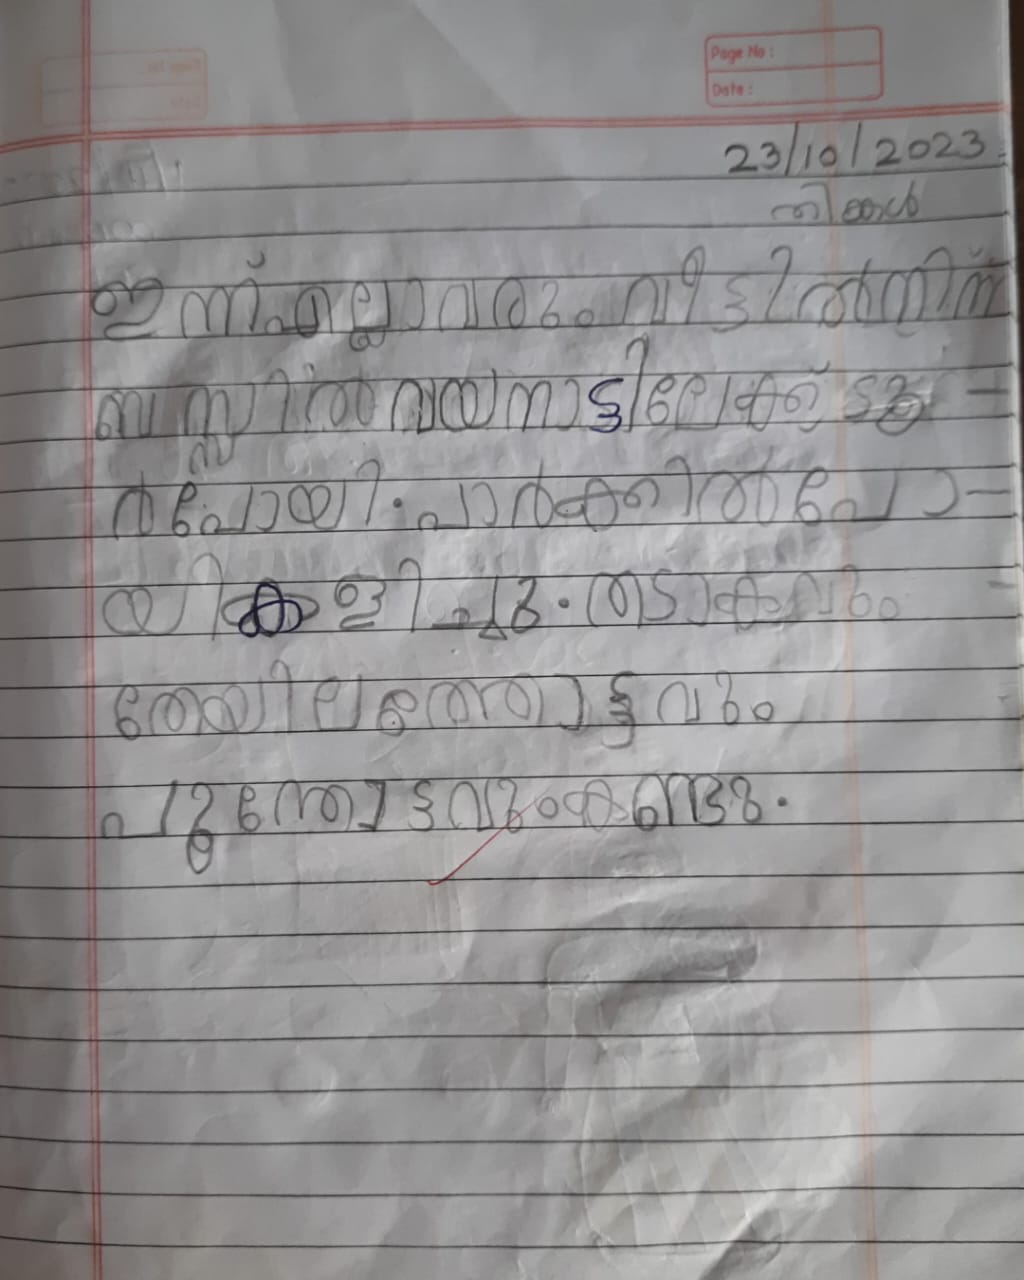 Page No :
Date :
23/10/2023
തിങ്കൾ
ഇന്ന് എല്ലാവരും വീട്ടിൽ നിന്ന്
ബസ്സിൽ വയനാട്ടിലേക്ക്
പോയി. പാർക്കിൽ പോ-
യി കളിച്ചു. തടാകവും
തേയിലത്തോട്ടവും
പൂന്തോട്ടവും കണ്ടു.